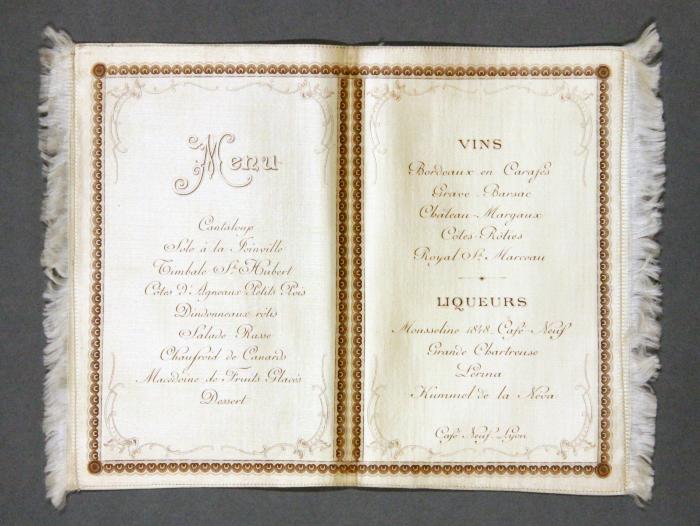 Menu
Cantaloup
Sole à la Joinville
Timbale St. Hubert
Côtes d'Agneaux Petits Pois
Dindonneaux rôtis
Salade Russe
Chaufroid de Canards
Macédoine de Fruits Glacés
Dessert
VINS
Bordeaux en Carafes
Grave-Barsac
Château-Margaux
Côtes-Rôties
Royal St. Marceau
LIQUEURS
Mousseline 1848 Café-Neuf
Grande Chartreuse
Lérina
Kummel de la Néva
Café Neuf-Lyon